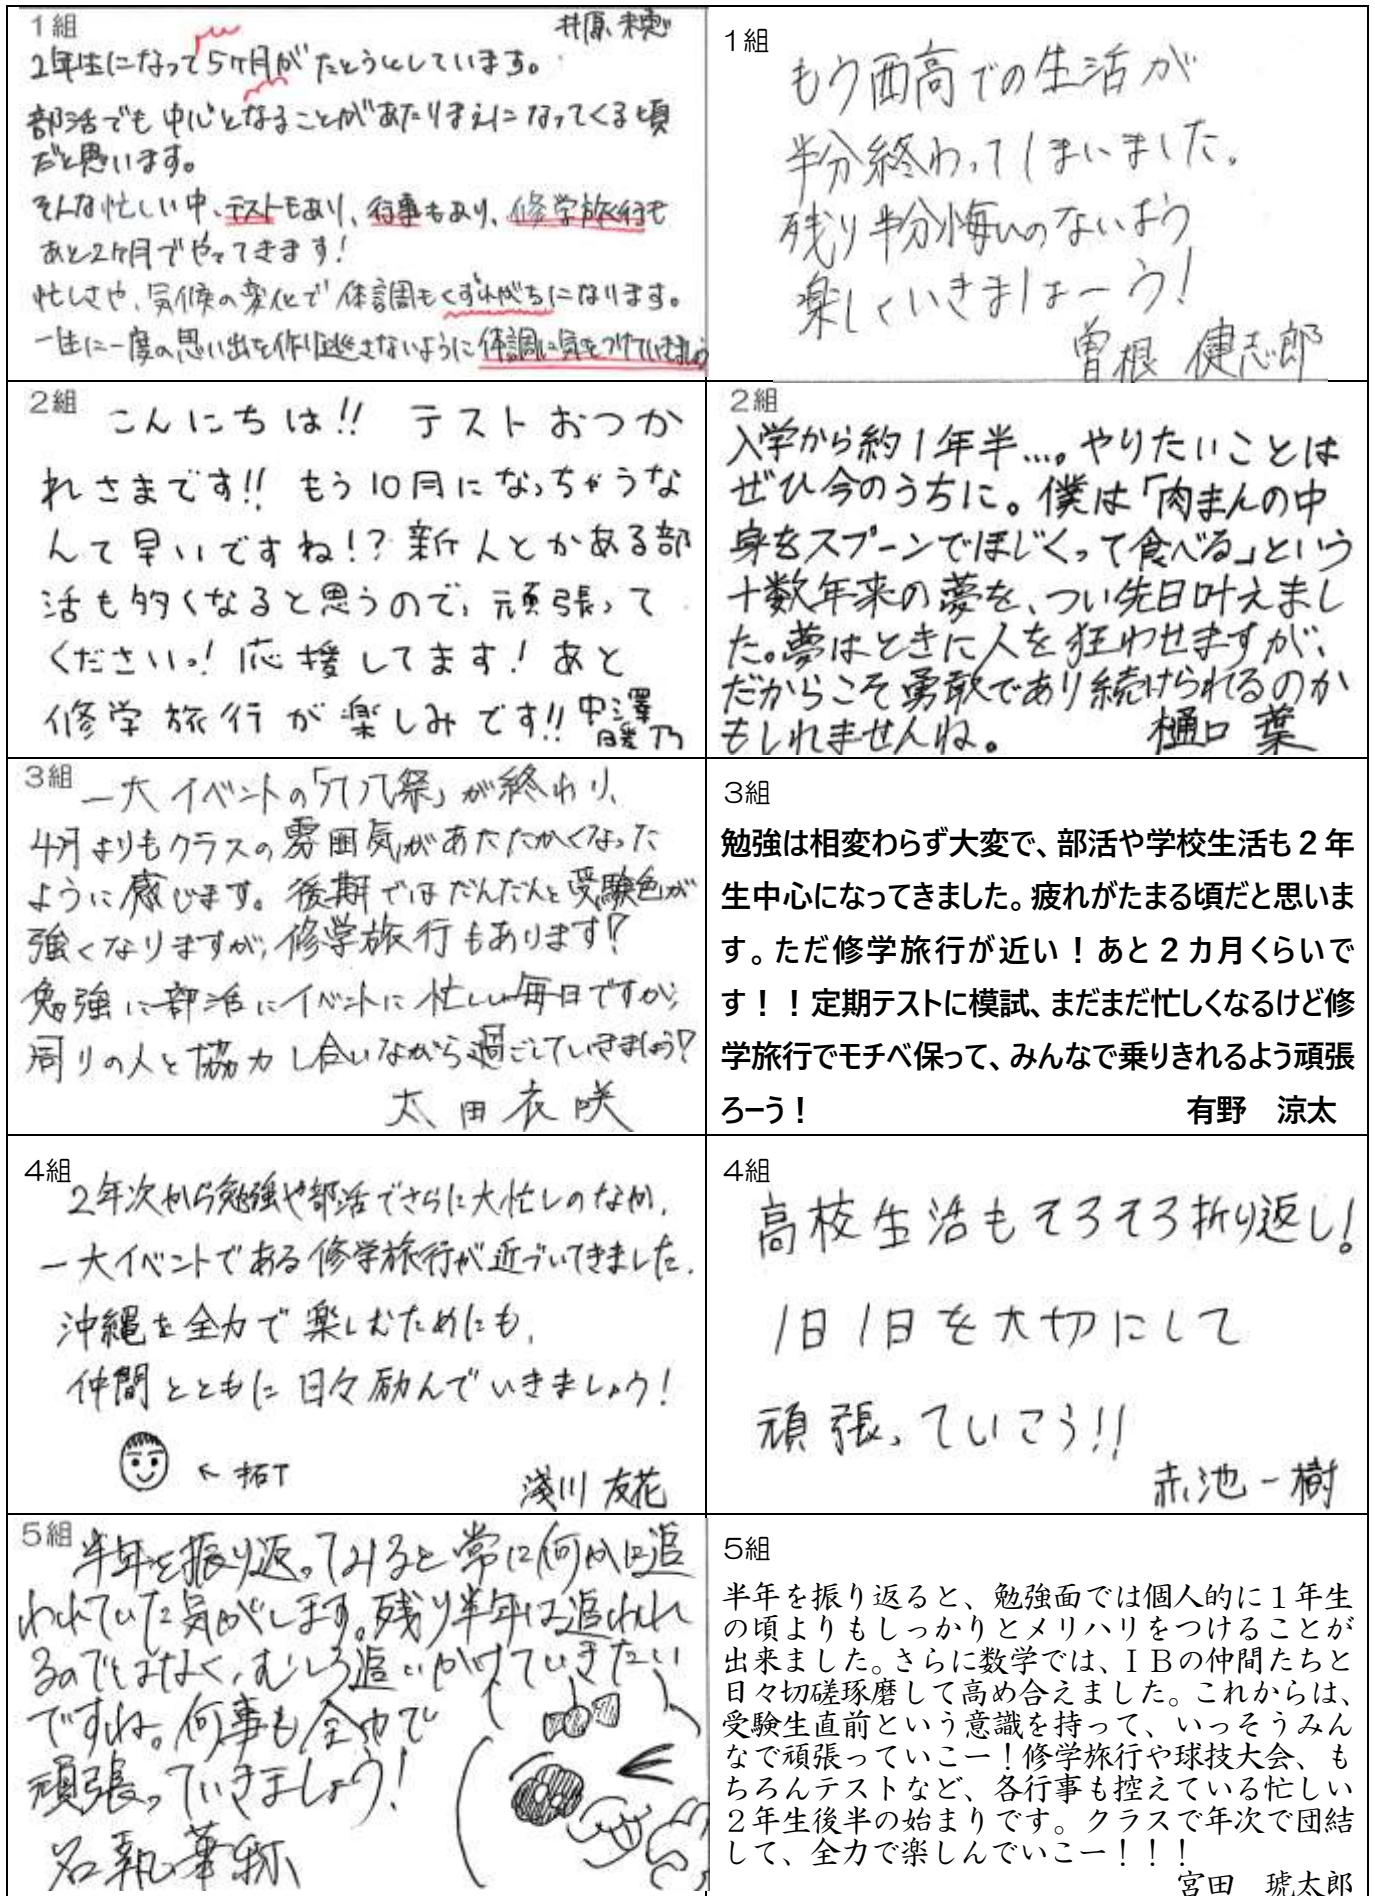 1組
井原 未恵
2年生になって5ヶ月がたとうとしています。
部活でも中心となることがあたりまえになってくる頃
だと思います。
そんな忙しい中、テストもあり、行事もあり、修学旅行も
あと2ヶ月でやってきます!
忙しさや、気候の変化で体調もくずれがちになります。
一生に一度の思い出を作り逃さないように体調に気をつけていきましょう
1組
もう西高での生活が
半分終わってしまいました。
残り半分悔いのないよう
楽しくいきましょーう!
曽根 健志郎
2組
こんにちは!! テストおつか
れさまです!! もう10月になっちゃうな
んて早いですね!? 新人とかある部
活も多くなると思うので、頑張って
くださいっ! 応援してます! あと
修学旅行が楽しみです!! 中澤
暖乃
2組
入学から約1年半…。やりたいことは
ぜひ今のうちに。僕は「肉まんの中
身をスプーンでほじくって食べる」という
十数年来の夢を、つい先日叶えまし
た。夢はときに人を狂わせますが、
だからこそ勇敢であり続けられるのか
もしれませんね。 樋口 葉
3組
一大イベントの「穴八祭」が終わり、
4月よりもクラスの雰囲気があたたかくなった
ように感じます。後期ではだんだんと受験色が
強くなりますが、修学旅行もあります!
勉強に部活にイベントに忙しい毎日ですが、
周りの人と協力し合いながら過ごしていきましょう!
太田 衣咲
3組
勉強は相変わらず大変で、部活や学校生活も2年
生中心になってきました。疲れがたまる頃だと思いま
す。ただ修学旅行が近い!あと2カ月くらいで
す!!定期テストに模試、まだまだ忙しくなるけど修
学旅行でモチベ保って、みんなで乗りきれるよう頑張
ろーう! 有野 涼太
4組
2年次から勉強や部活でさらに大忙しのなか、
一大イベントである修学旅行が近づいてきました。
沖縄を全力で楽しむためにも、
仲間とともに日々励んでいきましょう!
浅川 友花
4組
高校生活もそろそろ折り返し!
1日1日を大切にして
頑張っていこう!!
赤池 一樹
5組
半年を振り返ってみると常に何かに追
われていた気がします。残り半年は追われ
るのではなく、むしろ追いかけていきたい
ですね。何事も全力で
頑張っていきましょう!
名執 華
5組
半年を振り返ると、勉強面では個人的に1年生
の頃よりもしっかりとメリハリをつけることが
出来ました。さらに数学では、IBの仲間たちと
日々切磋琢磨して高め合えました。これからは、
受験生直前という意識を持って、いっそうみん
なで頑張っていこー!修学旅行や球技大会、も
ちろんテストなど、各行事も控えている忙しい
2年生後半の始まりです。クラスで年次で団結
して、全力で楽しんでいこー!!!
宮田 琥太郎